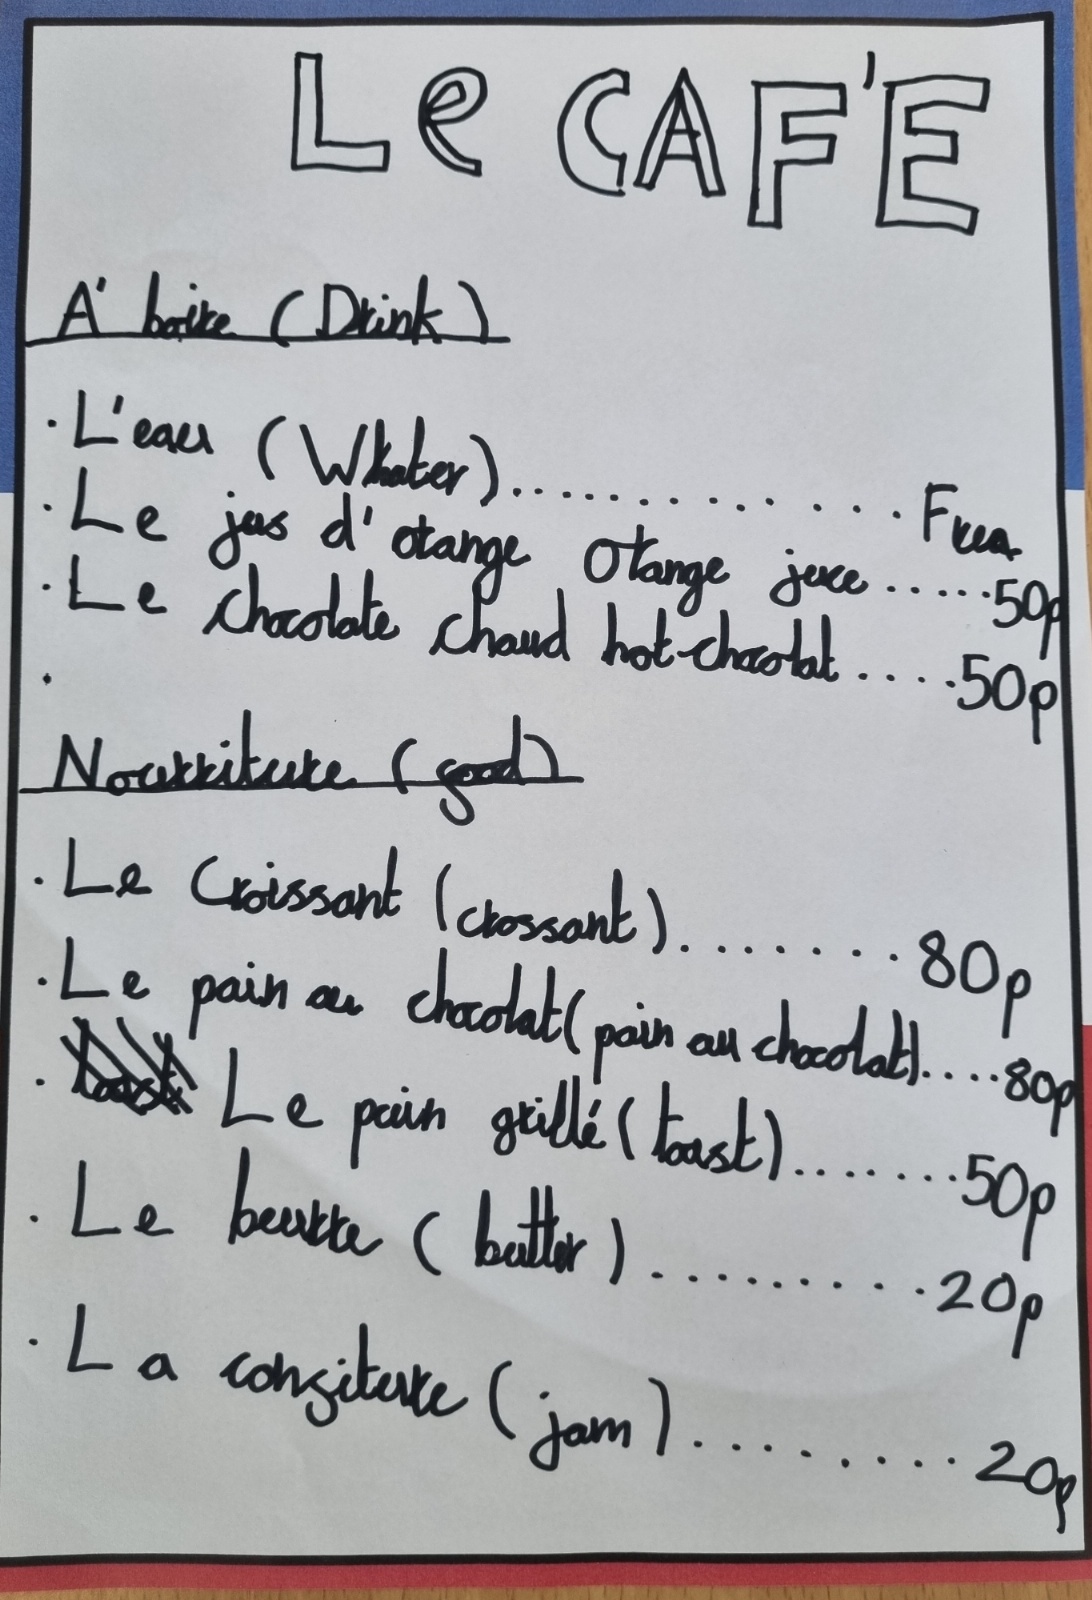 Le CAFÉ
A' boire (Drink)
· L'eau (Whater).............. Free
· Le jus d'orange Orange juce......50p
· Le chocolate chaud hot-chocolat.....50p
·
Nourriture (food)
· Le Croissant (crossant)........80p
· Le pain au chocolat(pain au chocolat)....80p
· Le pain grillé (toast).......50p
· Le beurre (butter)..........20p
· La confiture (jam).........20p